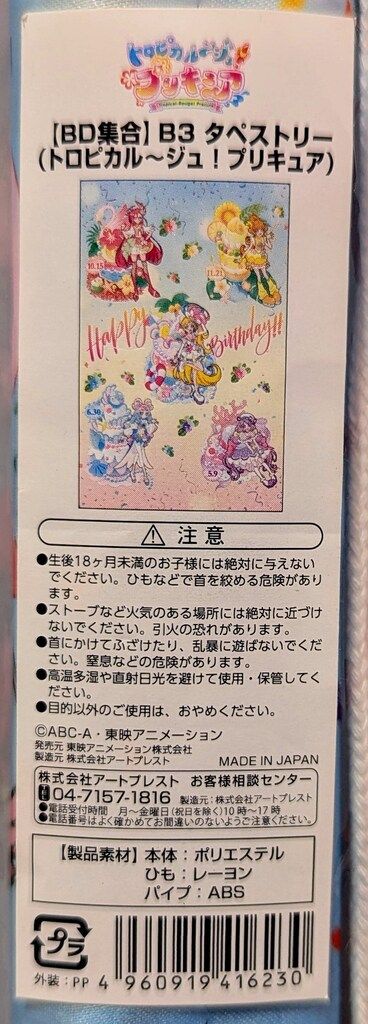 トロピカル〜ジュ!
プリキュア
Tropical-Rouge! Precure
【BD集合】B3 タペストリー
(トロピカル〜ジュ!プリキュア)
10.15
11.21
Happy
Birthday!!
8.1
6.30
5.9
⚠ 注意
●生後18ヶ月未満のお子様には絶対に与えない
でください。ひもなどで首を絞める危険があり
ます。
●ストーブなど火気のある場所には絶対に近づけ
ないでください。引火の恐れがあります。
●首にかけてふざけたり、乱暴に遊ばないでくだ
さい。窒息などの危険があります。
●高温多湿や直射日光を避けて使用・保管してく
ださい。
●目的以外のご使用は、おやめください。
©ABC-A・東映アニメーション
発売元 東映アニメーション株式会社
製造元 株式会社アートプレスト MADE IN JAPAN
株式会社アートプレスト お客様相談センター
04-7157-1816 製造元:株式会社アートプレスト
●電話受付時間 月〜金曜日(祝日を除く)10時〜17時
●電話番号はよく確かめてお間違いのないようご注意ください。
【製品素材】本体:ポリエステル
ひも:レーヨン
パイプ:ABS
プラ
外装:PP
4 960919 416230